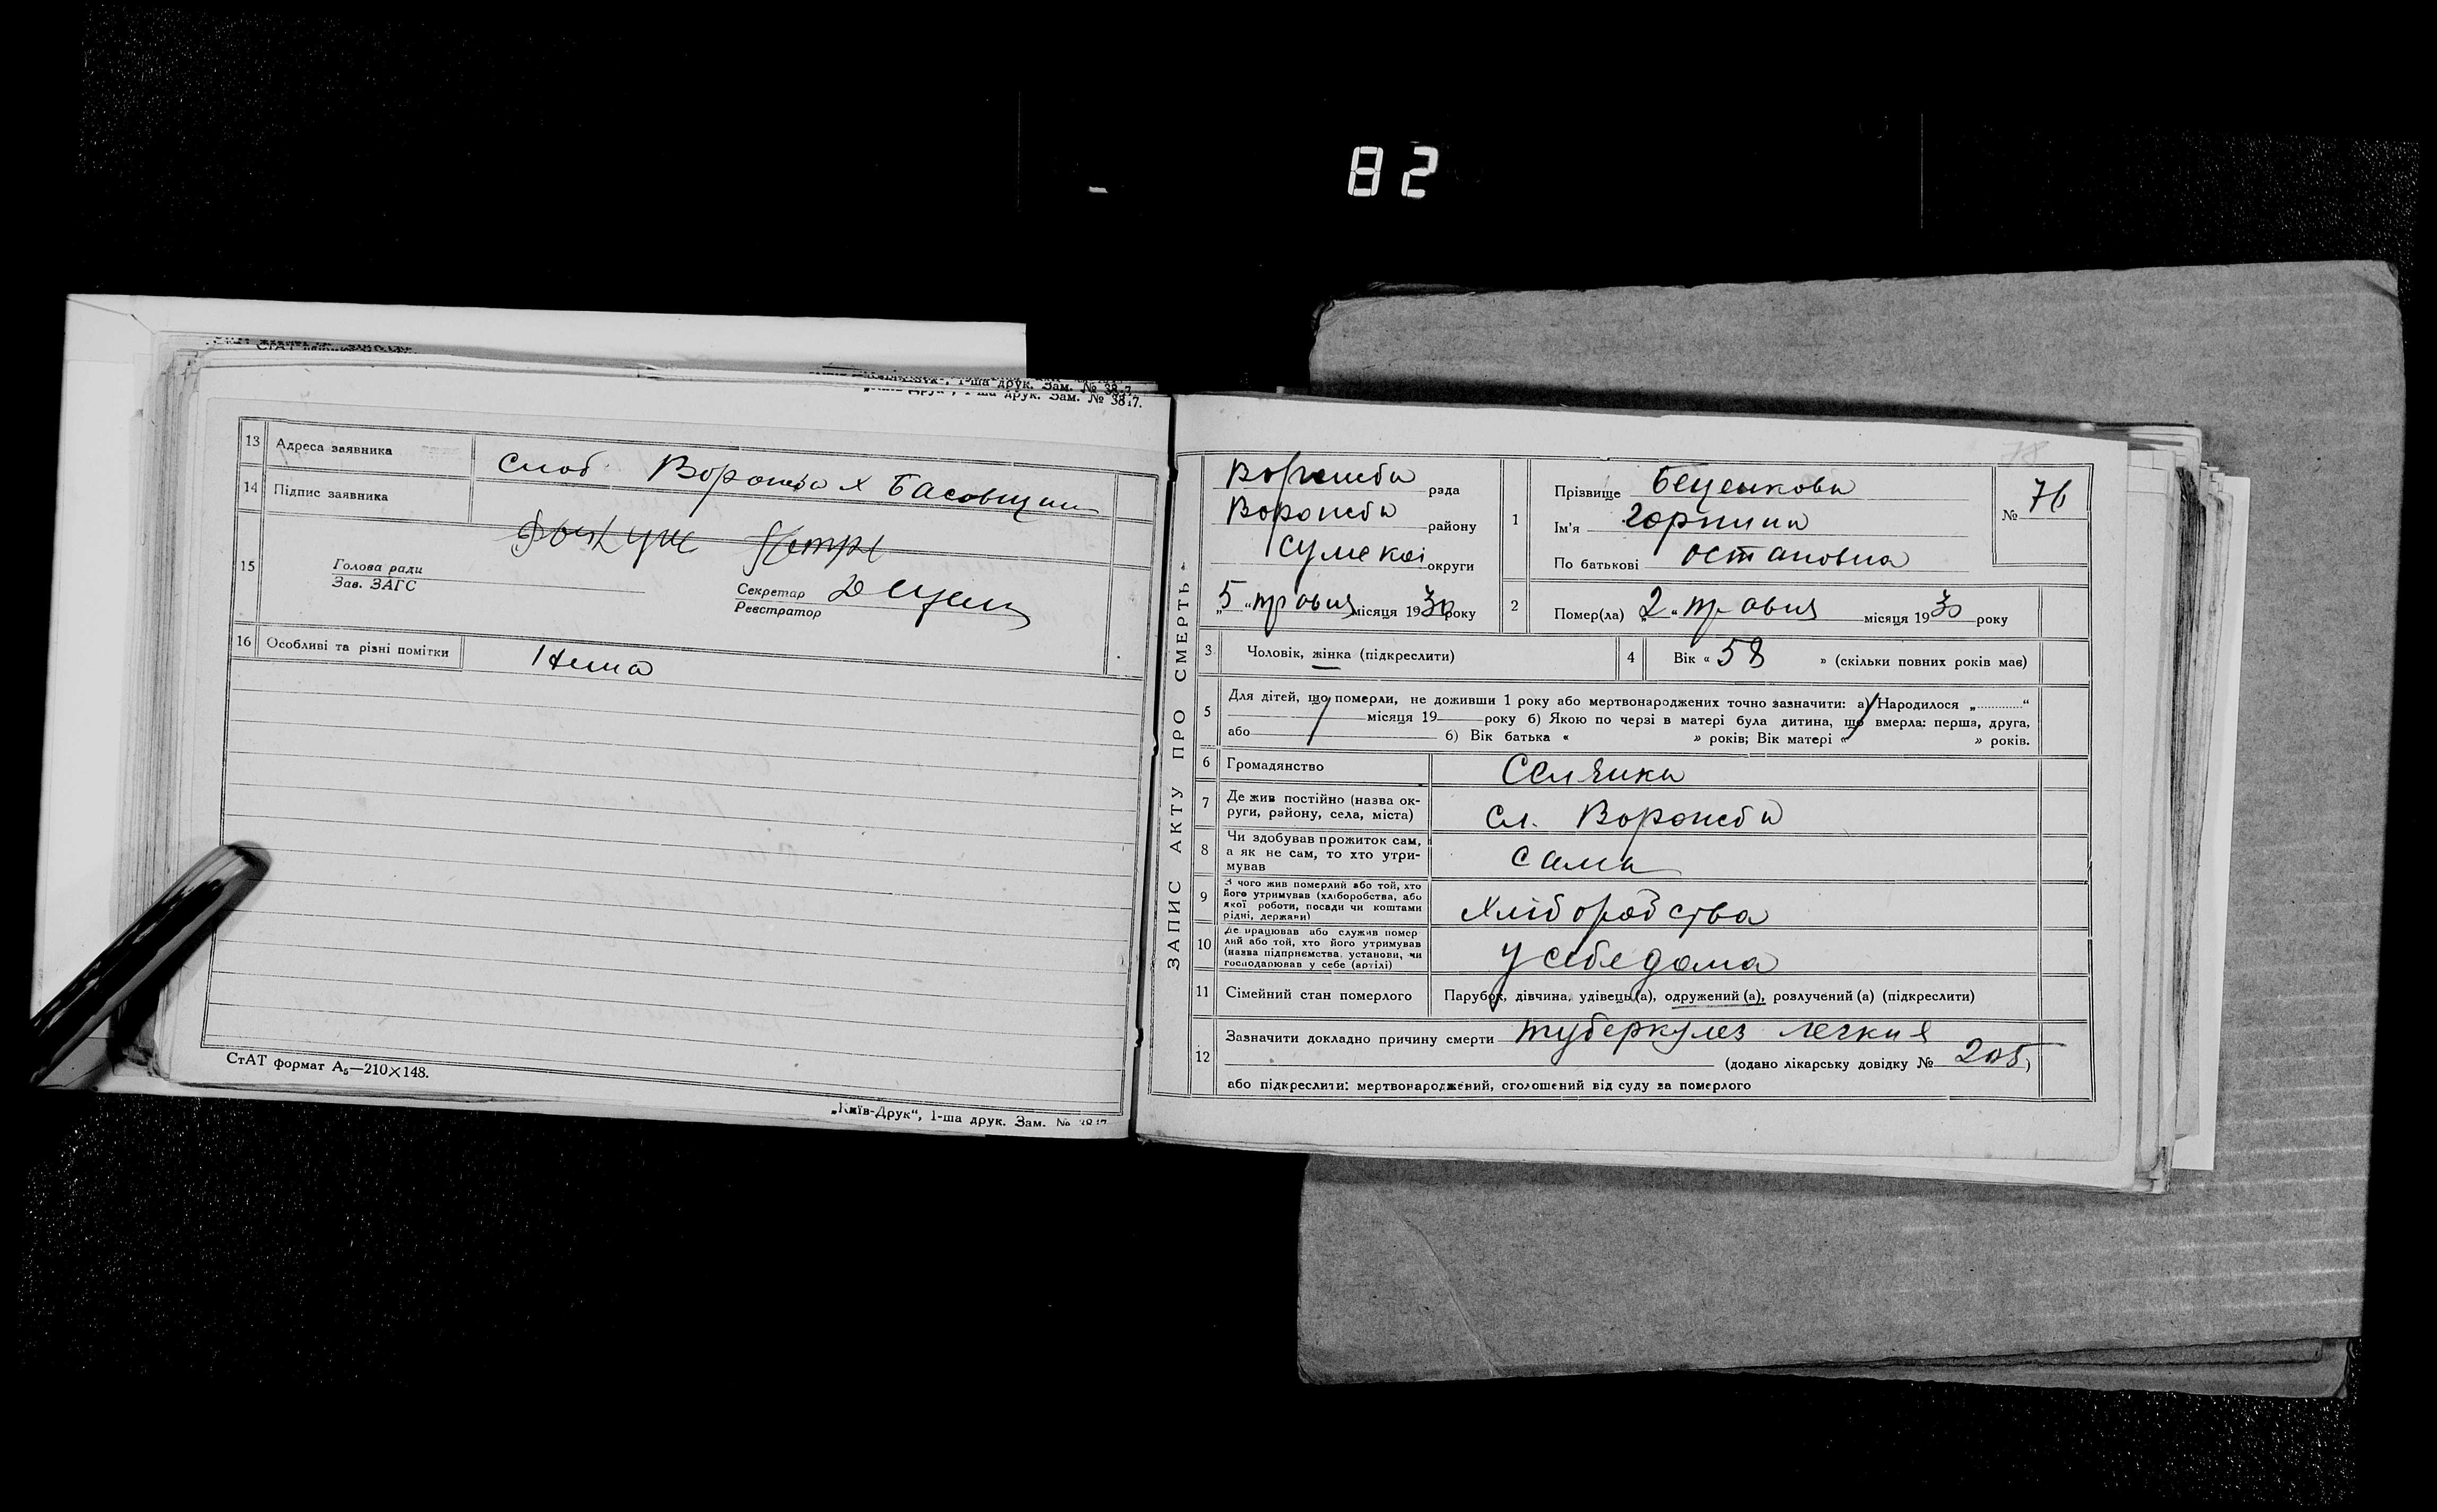 82
1-ша друк. Зам. №
друк. Зам. № 3817.
13 Адреса заявника Слоб. Ворожба х Басовщин
14 Підпис заявника
15 Голова ради
Зав. ЗАГС
Секретар
Реєстратор
16 Особливі та різні помітки Нема
СтАТ формат А5—210×148.
„Київ-Друк“, 1-ша друк. Зам. № 3817
ЗАПИС АКТУ ПРО СМЕРТЬ
78
Ворожба рада
Ворожба району
Сумской округи
„5“ травня місяця 1930 року
1 Прізвище
Ім'я Горпина
По батькові Остаповна
№ 76
2 Помер(ла) „2“ травня місяця 1930 року
3 Чоловік, жінка (підкреслити)
4 Вік « 58 » (скільки повних років має)
5 Для дітей, що померли, не доживши 1 року або мертвонароджених точно зазначити: а) Народилося „............“
місяця 19 року б) Якою по черзі в матері була дитина, що вмерла: перша, друга,
або б) Вік батька « » років; Вік матері « » років.
6 Громадянство Селянка
7 Де жив постійно (назва ок-
руги, району, села, міста) Сл. Ворожба
8 Чи здобував прожиток сам,
а як не сам, то хто утри-
мував сама
9 З чого жив померлий або той, хто
його утримував (хліборобства, або
якої роботи, посади чи коштами
рідні, держави) Хліборобства
10 Де працював або служив помер
лий або той, хто його утримував
(назва підприємства, установи, чи
господарював у себе (артілі) У себе дома
11 Сімейний стан померлого Парубок, дівчина, удівець(а), одружений (а), розлучений (а) (підкреслити)
12 Зазначити докладно причину смерти туберкулез легкия
(додано лікарську довідку № 205)
або підкреслити: мертвонароджений, оголошений від суду за померлого